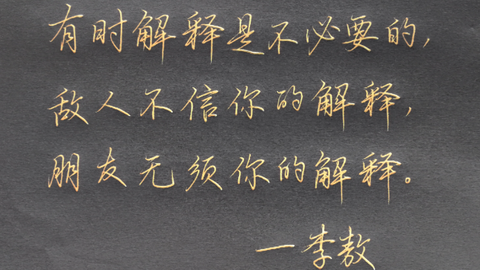 有时解释是不必要的,
敌人不信你的解释,
朋友无须你的解释。
一李敖